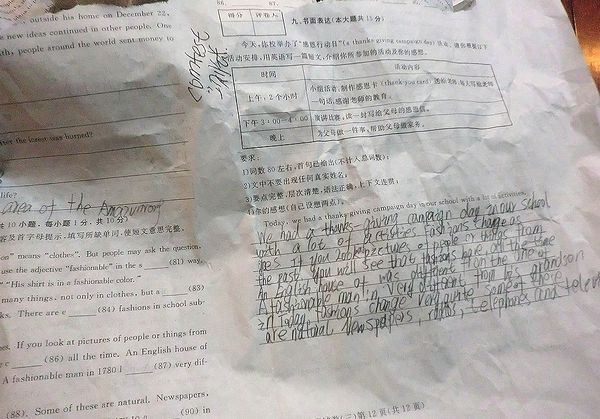 outside his home on December 22,
new ideas continued in other people. One
people around the world sent money to
ter the forest was burned?
life?
area of the
共10小题,每小题1分,共10分)
容及首字母提示,填写所缺单词,使短文意思完整。
on" means "clothes". But people may ask the question,
use the adjective "fashionable" in the s____(81) way.
"His shirt is in a fashionable color."
many things, not only in clothes, but a____(83)
ks. There are e____(84) fashions in school sub-
es. If you look at pictures of people or things from
e____(86) all the time. An English house of
A fashionable man in 1780 l____(87) very dif-
(88). Some of these are natural. Newspapers,
(90) in
86.
87.
contest
得分 评卷人
九、书面表达(本大题共15分)
今天,你校举办了"感恩行动日"(a thanks-giving campaign day)活动。请你根据以下
活动安排,用英语写一篇短文,介绍你所参加的活动及你的感想。
时间 活动内容
上午:2个小时 小组活动,制作感恩卡(thank-you card)送给老师,每人写给老师
一句话,感谢老师的教育。
下午3:00—4:00 演讲比赛,读一封写给父母的感恩信。
晚上 为父母做一件事,帮助父母做家务。
要求:
1)词数80左右,首句已给出(不计入总词数);
2)文中不要出现任何真实姓名;
3)要点完整,层次清楚,语法正确,上下文连贯;
4)你的感想(自己设想两点)。
Today, we had a thanks-giving campaign day in our school with a lot of activities.
We had a thanks-giving campaign day in our school
with a lot of fashions change as
goes if you look pictures of people or things from
the past. You will see that fashions have all the time
An English house of was different from the one of
A fashionable man in very different from his grandson
In today fashions change very quite some of there
are natural Newspapers, radios, telephones and
第12页(共12页)